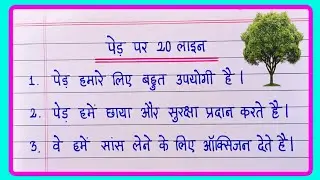 पेड़ पर 20 लाइन
1. पेड़ हमारे लिए बहुत उपयोगी है।
2. पेड़ हमें छाया और सुरक्षा प्रदान करते है।
3. वे हमें सांस लेने के लिए ऑक्सिजन देते है।